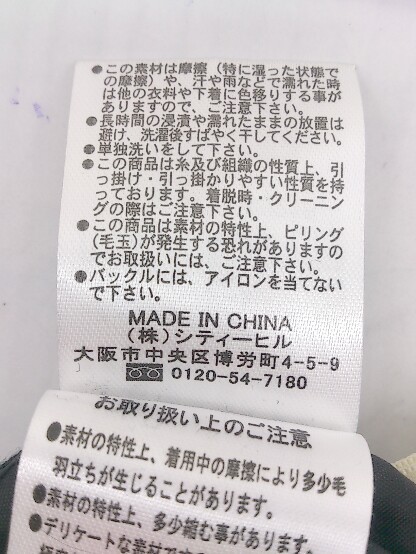 ●この素材は摩擦（特に湿った状態で
の摩擦）や、汗や雨などで濡れた時
は他の衣料や下着に色移りする事が
ありますので、ご注意下さい。
●長時間の浸漬や濡れたままの放置は
避け、洗濯後すばやく干してください。
●単独洗いをして下さい。
●この商品は糸及び組織の性質上、引
っ掛け・引っ掛かりやすい性質を持
っております。着脱時・クリーニン
グの際はご注意下さい。
●この商品は素材の特性上、ピリング
（毛玉）が発生する恐れがありますの
でお取扱いには、ご注意下さい。
●バックルには、アイロンを当てない
で下さい。
MADE IN CHINA
（株）シティーヒル
大阪市中央区博労町4-5-9
0120-54-7180
お取り扱い上のご注意
●素材の特性上、着用中の摩擦により多少毛
羽立ちが生じることがあります。
●素材の特性上、多少縮む事があります。
●デリケートな素材です